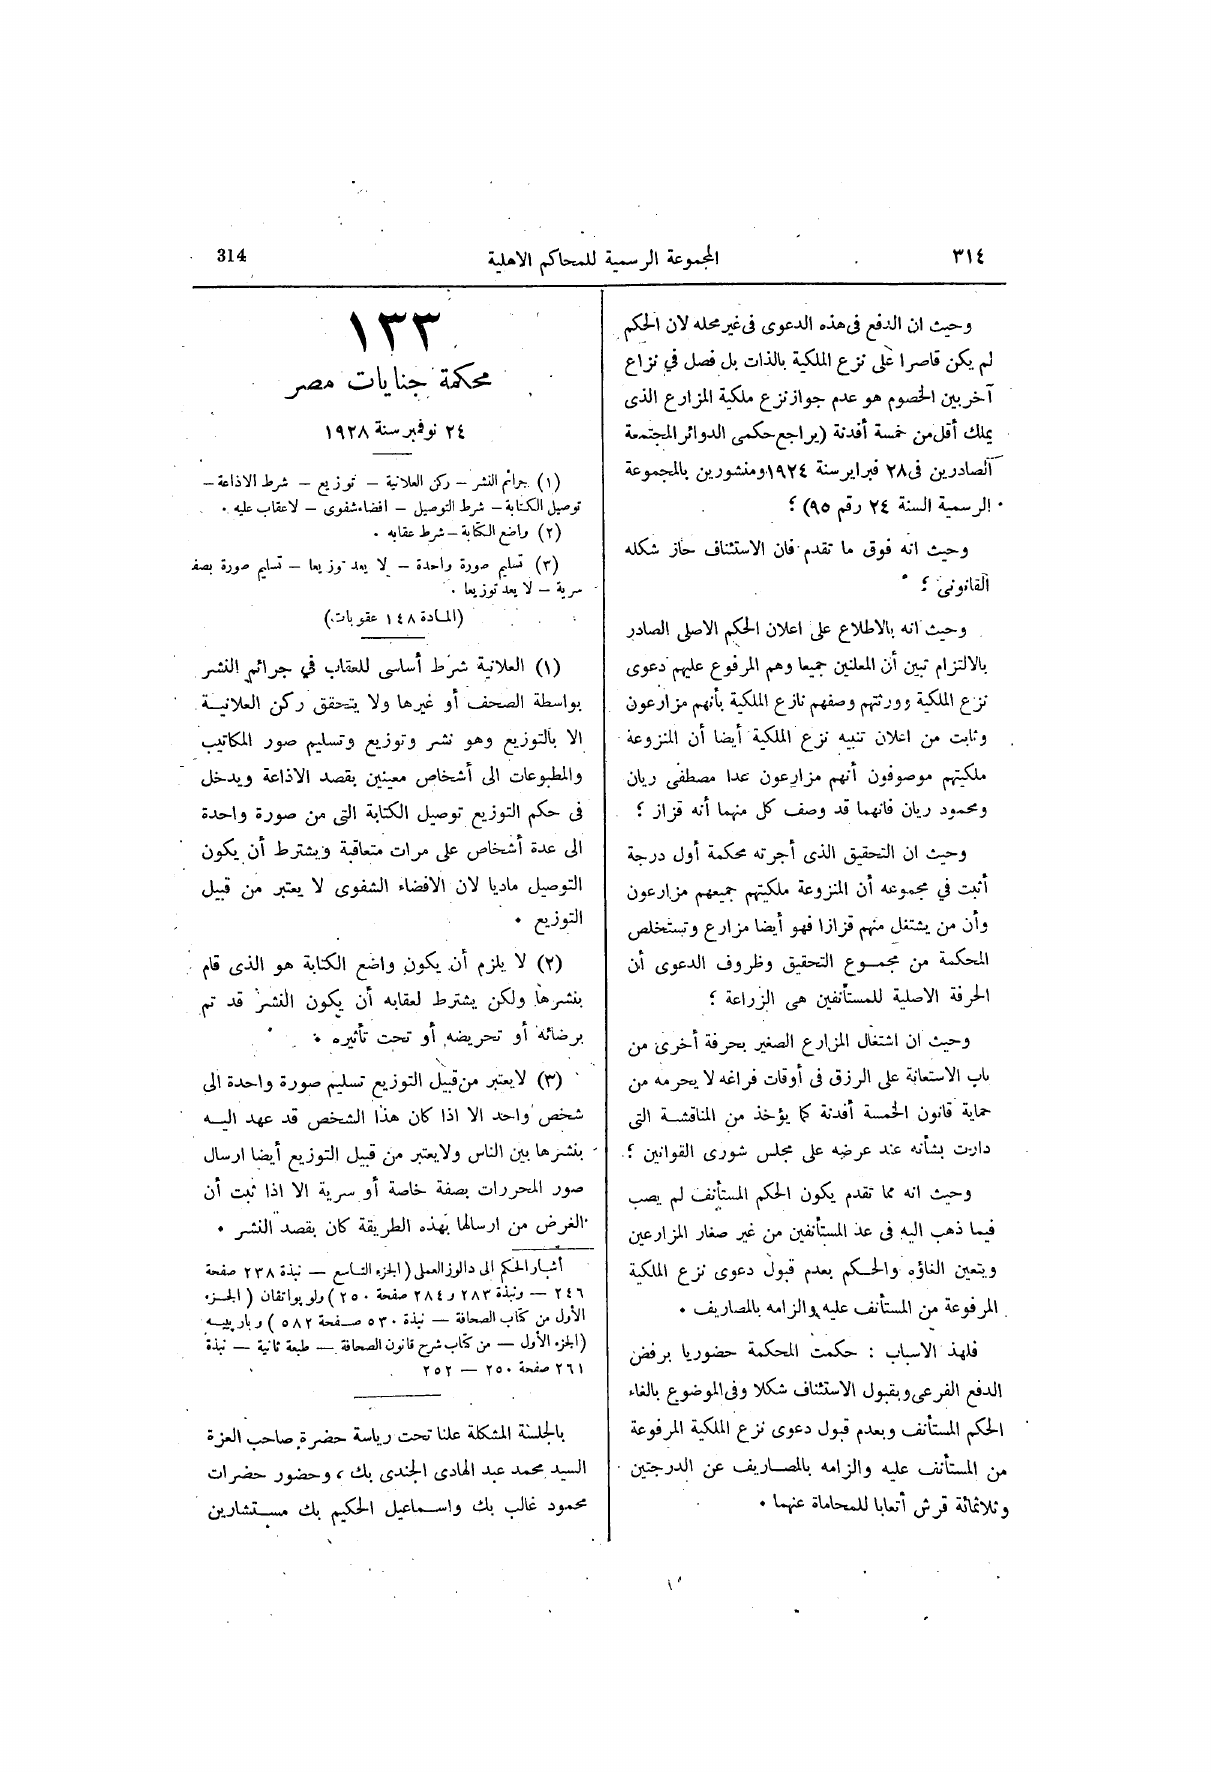 ٣١٤
المجموعة الرسمية للمحاكم الاهلية
314
وحيث ان الدفع فى هذه الدعوى فى غير محله لان الحكم
لم يكن قاصرا على نزع الملكية بالذات بل فصل في نزاع
آخر بين الخصوم هو عدم جواز نزع ملكية المزارع الذى
يملك أقل من خمسة أفدنة (يراجع حكمى الدوائر المجتمعة
الصادرين فى ٢٨ فبراير سنة ١٩٢٤ ومنشورين بالمجموعة
الرسمية السنة ٢٤ رقم ٩٥) ؛
وحيث انه فوق ما تقدم فان الاستئناف حاز شكله
القانونى ؛
وحيث انه بالاطلاع على اعلان الحكم الاصلى الصادر
بالالتزام تبين أن المعلنين جميعا وهم المرفوع عليهم دعوى
نزع الملكية وورثتهم وصفهم نازع الملكية بأنهم مزارعون
وثابت من اعلان تنبيه نزع الملكية أيضا أن المنزوعة
ملكيتهم موصوفون أنهم مزارعون عدا مصطفى ريان
ومحمود ريان فانهما قد وصف كل منهما أنه قزاز ؛
وحيث ان التحقيق الذى أجرته محكمة أول درجة
أثبت في مجموعه أن المنزوعة ملكيتهم جميعهم مزارعون
وأن من يشتغل منهم قزازا فهو أيضا مزارع وتستخلص
المحكمة من مجموع التحقيق وظروف الدعوى أن
الحرفة الاصلية للمستأنفين هى الزراعة ؛
وحيث ان اشتغال المزارع الصغير بحرفة أخرى من
باب الاستعانة على الرزق فى أوقات فراغه لا يحرمه من
حماية قانون الخمسة أفدنة كما يؤخذ من المناقشة التى
دارت بشأنه عند عرضه على مجلس شورى القوانين ؛
وحيث انه مما تقدم يكون الحكم المستأنف لم يصب
فيما ذهب اليه فى عد المستأنفين من غير صغار المزارعين
ويتعين الغاؤه والحكم بعدم قبول دعوى نزع الملكية
المرفوعة من المستأنف عليه والزامه بالمصاريف ٠
فلهذ الاسباب : حكمت المحكمة حضوريا برفض
الدفع الفرعى وبقبول الاستئناف شكلا وفى الموضوع بالغاء
الحكم المستأنف وبعدم قبول دعوى نزع الملكية المرفوعة
من المستأنف عليه والزامه بالمصاريف عن الدرجتين
وثلاثمائة قرش أتعابا للمحاماة عنهما ٠
١٣٣
محكمة جنايات مصر
٢٤ نوفمبر سنة ١٩٢٨
(١) جرائم النشر – ركن العلانية – توزيع – شرط الاذاعة –
توصيل الكتابة – شرط التوصيل – افضاء شفوى – لاعقاب عليه ٠
(٢) واضع الكتابة – شرط عقابه ٠
(٣) تسليم صورة واحدة – لا يعد توزيعا – تسليم صورة بصفة
سرية – لا يعد توزيعا ٠
(المادة ١٤٨ عقوبات)
(١) العلانية شرط أساسى للعقاب في جرائم النشر
بواسطة الصحف أو غيرها ولا يتحقق ركن العلانية
الا بالتوزيع وهو نشر وتوزيع وتسليم صور المكاتيب
والمطبوعات الى أشخاص معينين بقصد الاذاعة ويدخل
فى حكم التوزيع توصيل الكتابة التى من صورة واحدة
الى عدة أشخاص على مرات متعاقبة ويشترط أن يكون
التوصيل ماديا لان الافضاء الشفوى لا يعتبر من قبيل
التوزيع ٠
(٢) لا يلزم أن يكون واضع الكتابة هو الذى قام
بنشرها ولكن يشترط لعقابه أن يكون النشر قد تم
برضائه أو تحريضه أو تحت تأثيره ٠
(٣) لايعتبر من قبيل التوزيع تسليم صورة واحدة الى
شخص واحد الا اذا كان هذا الشخص قد عهد اليه
بنشرها بين الناس ولايعتبر من قبيل التوزيع أيضا ارسال
صور المحررات بصفة خاصة أو سرية الا اذا ثبت أن
الغرض من ارسالها بهذه الطريقة كان بقصد النشر ٠
أشار الحكم الى دالوز العملى (الجزء التاسع – نبذة ٢٣٨ صفحة
٢٤٦ – ونبذة ٢٨٣ و ٢٨٤ صفحة ٢٥٠) ولوبواتفان (الجزء
الأول من كتاب الصحافة – نبذة ٥٣٠ صفحة ٥٨٢) وباربييه
(الجزء الأول – من كتاب شرح قانون الصحافة – طبعة ثانية – نبذة
٢٦١ صفحة ٢٥٠ – ٢٥٢
بالجلسة المشكلة علنا تحت رياسة حضرة صاحب العزة
السيد محمد عبد الهادى الجندى بك ، وحضور حضرات
محمود غالب بك واسماعيل الحكيم بك مستشارين